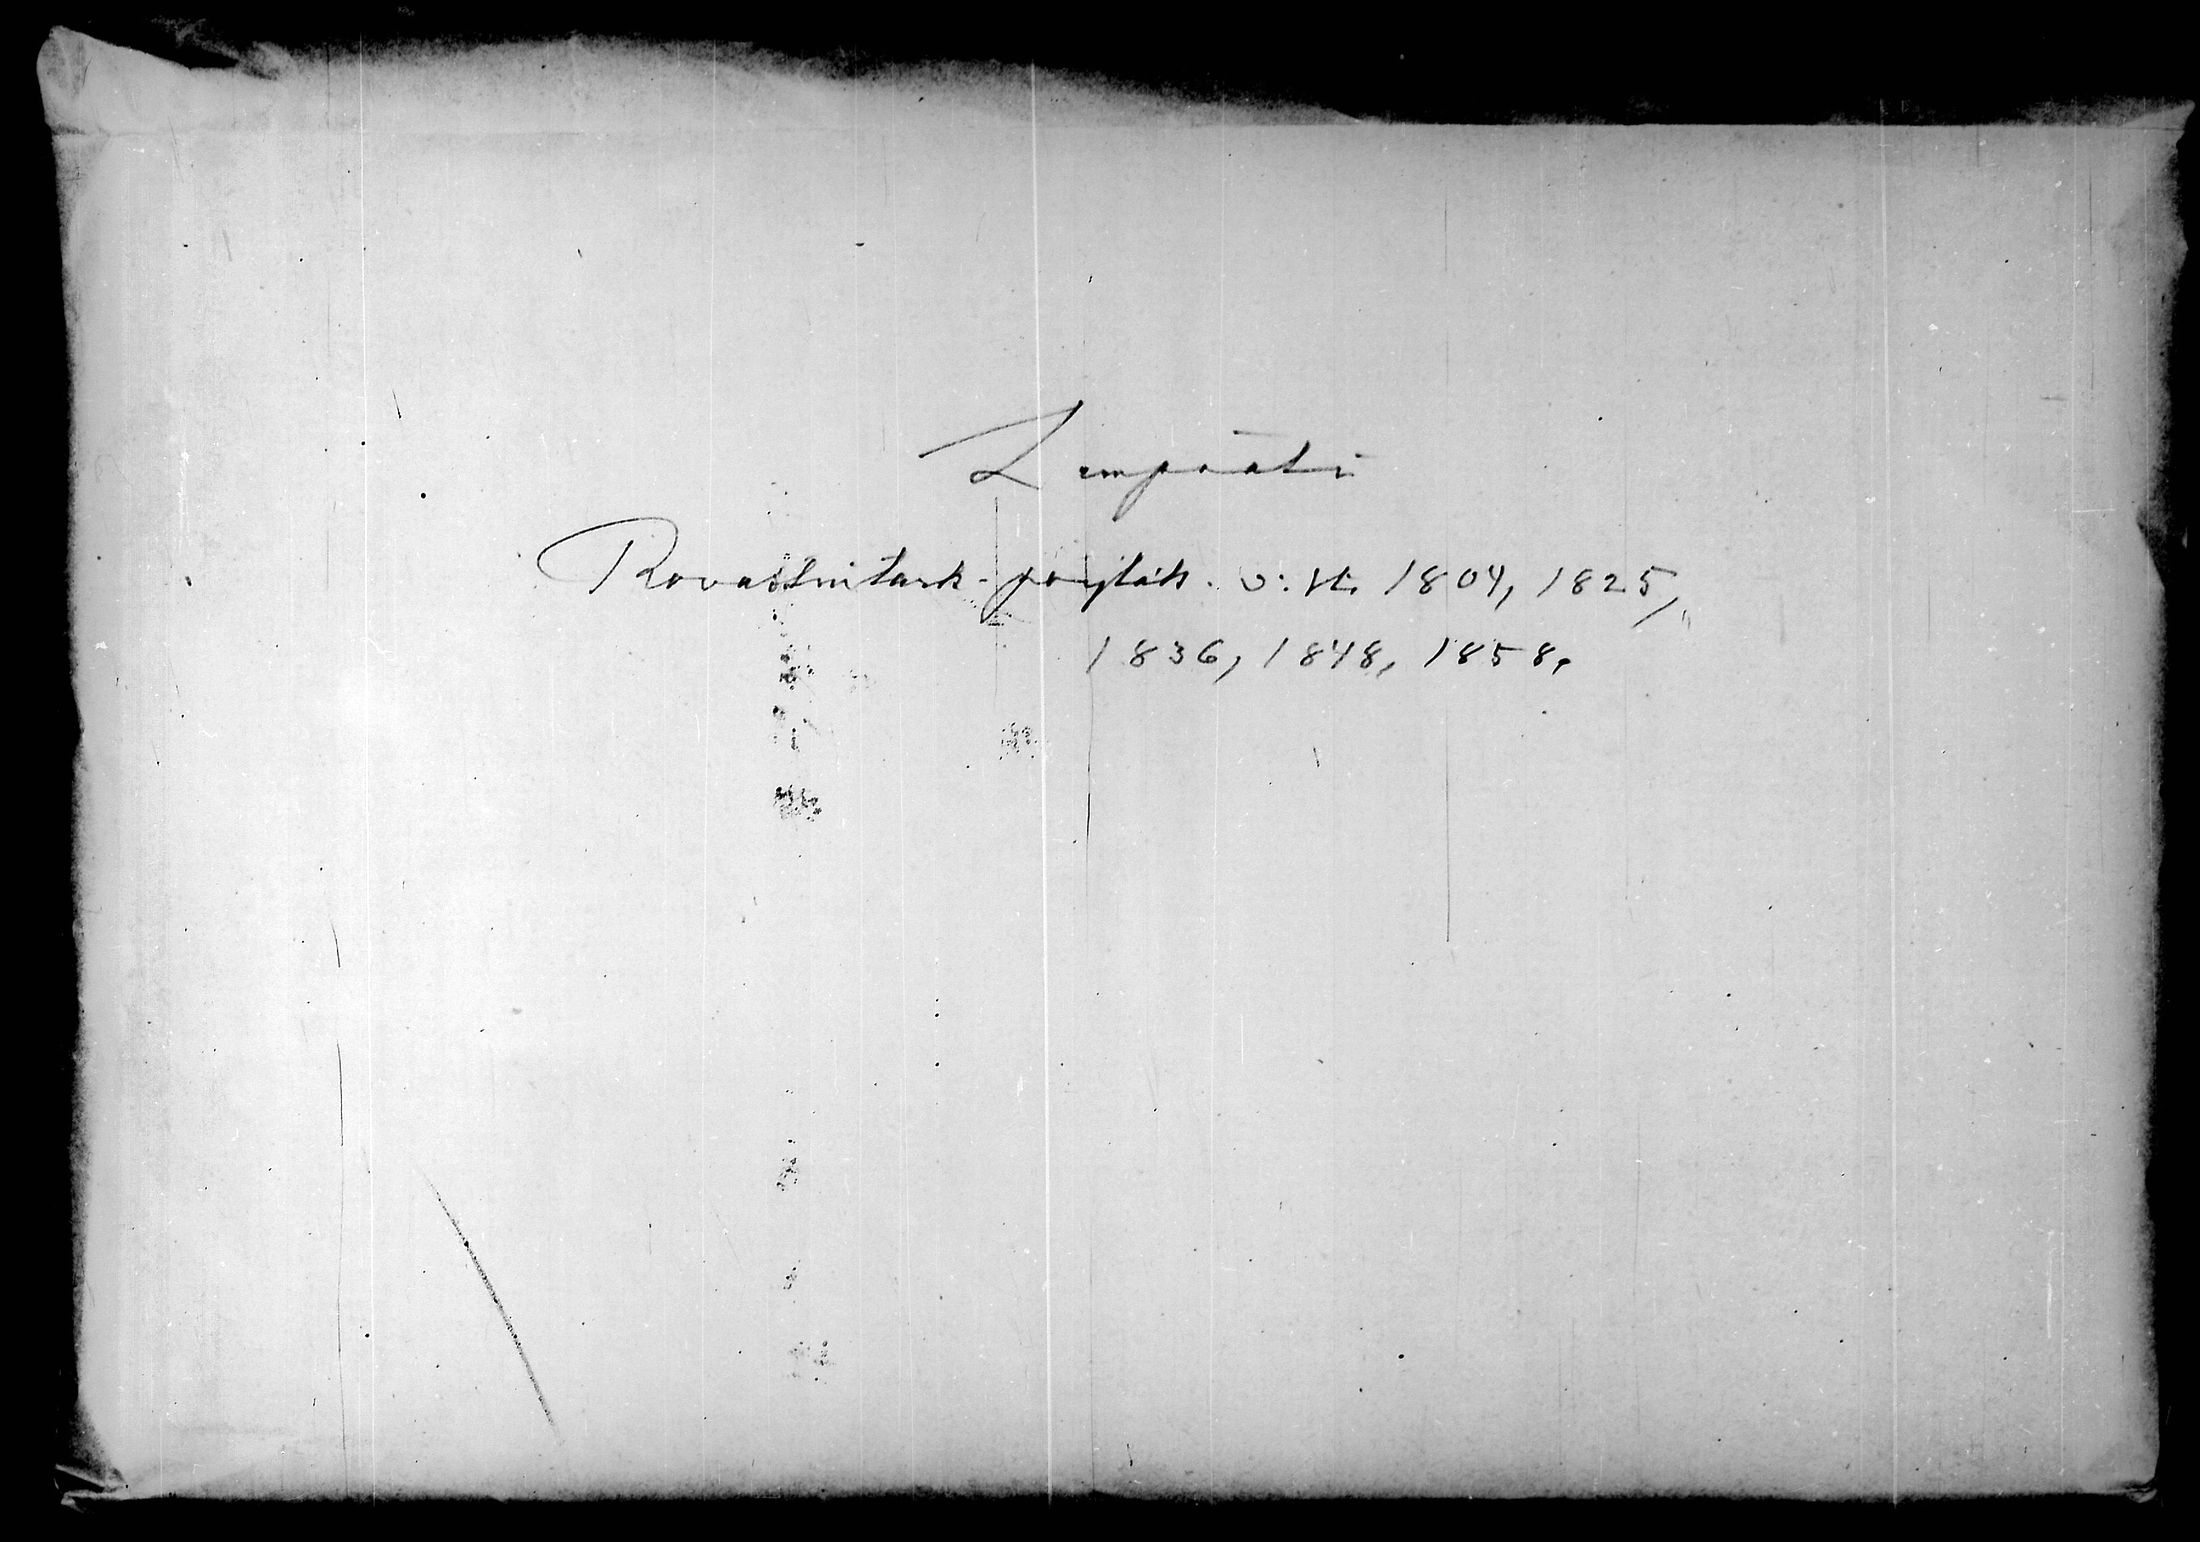 Lempäälä
Rovastintark. pöytäk. v:lt. 1804, 1825,
1836, 1848, 1858.